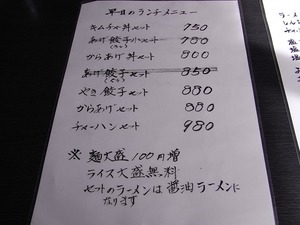 平日のランチメニュー
キムチャ丼セット 750
あげ餃子小セット 780
(くろぶた)
からあげ丼セット 800
あげ餃子セット 850
やき餃子セット 880
からあげセット 880
チャーハンセット 980
※ 麺大盛100円増
ライス大盛無料
セットのラーメンは醤油ラーメンに
なります
ラーメン